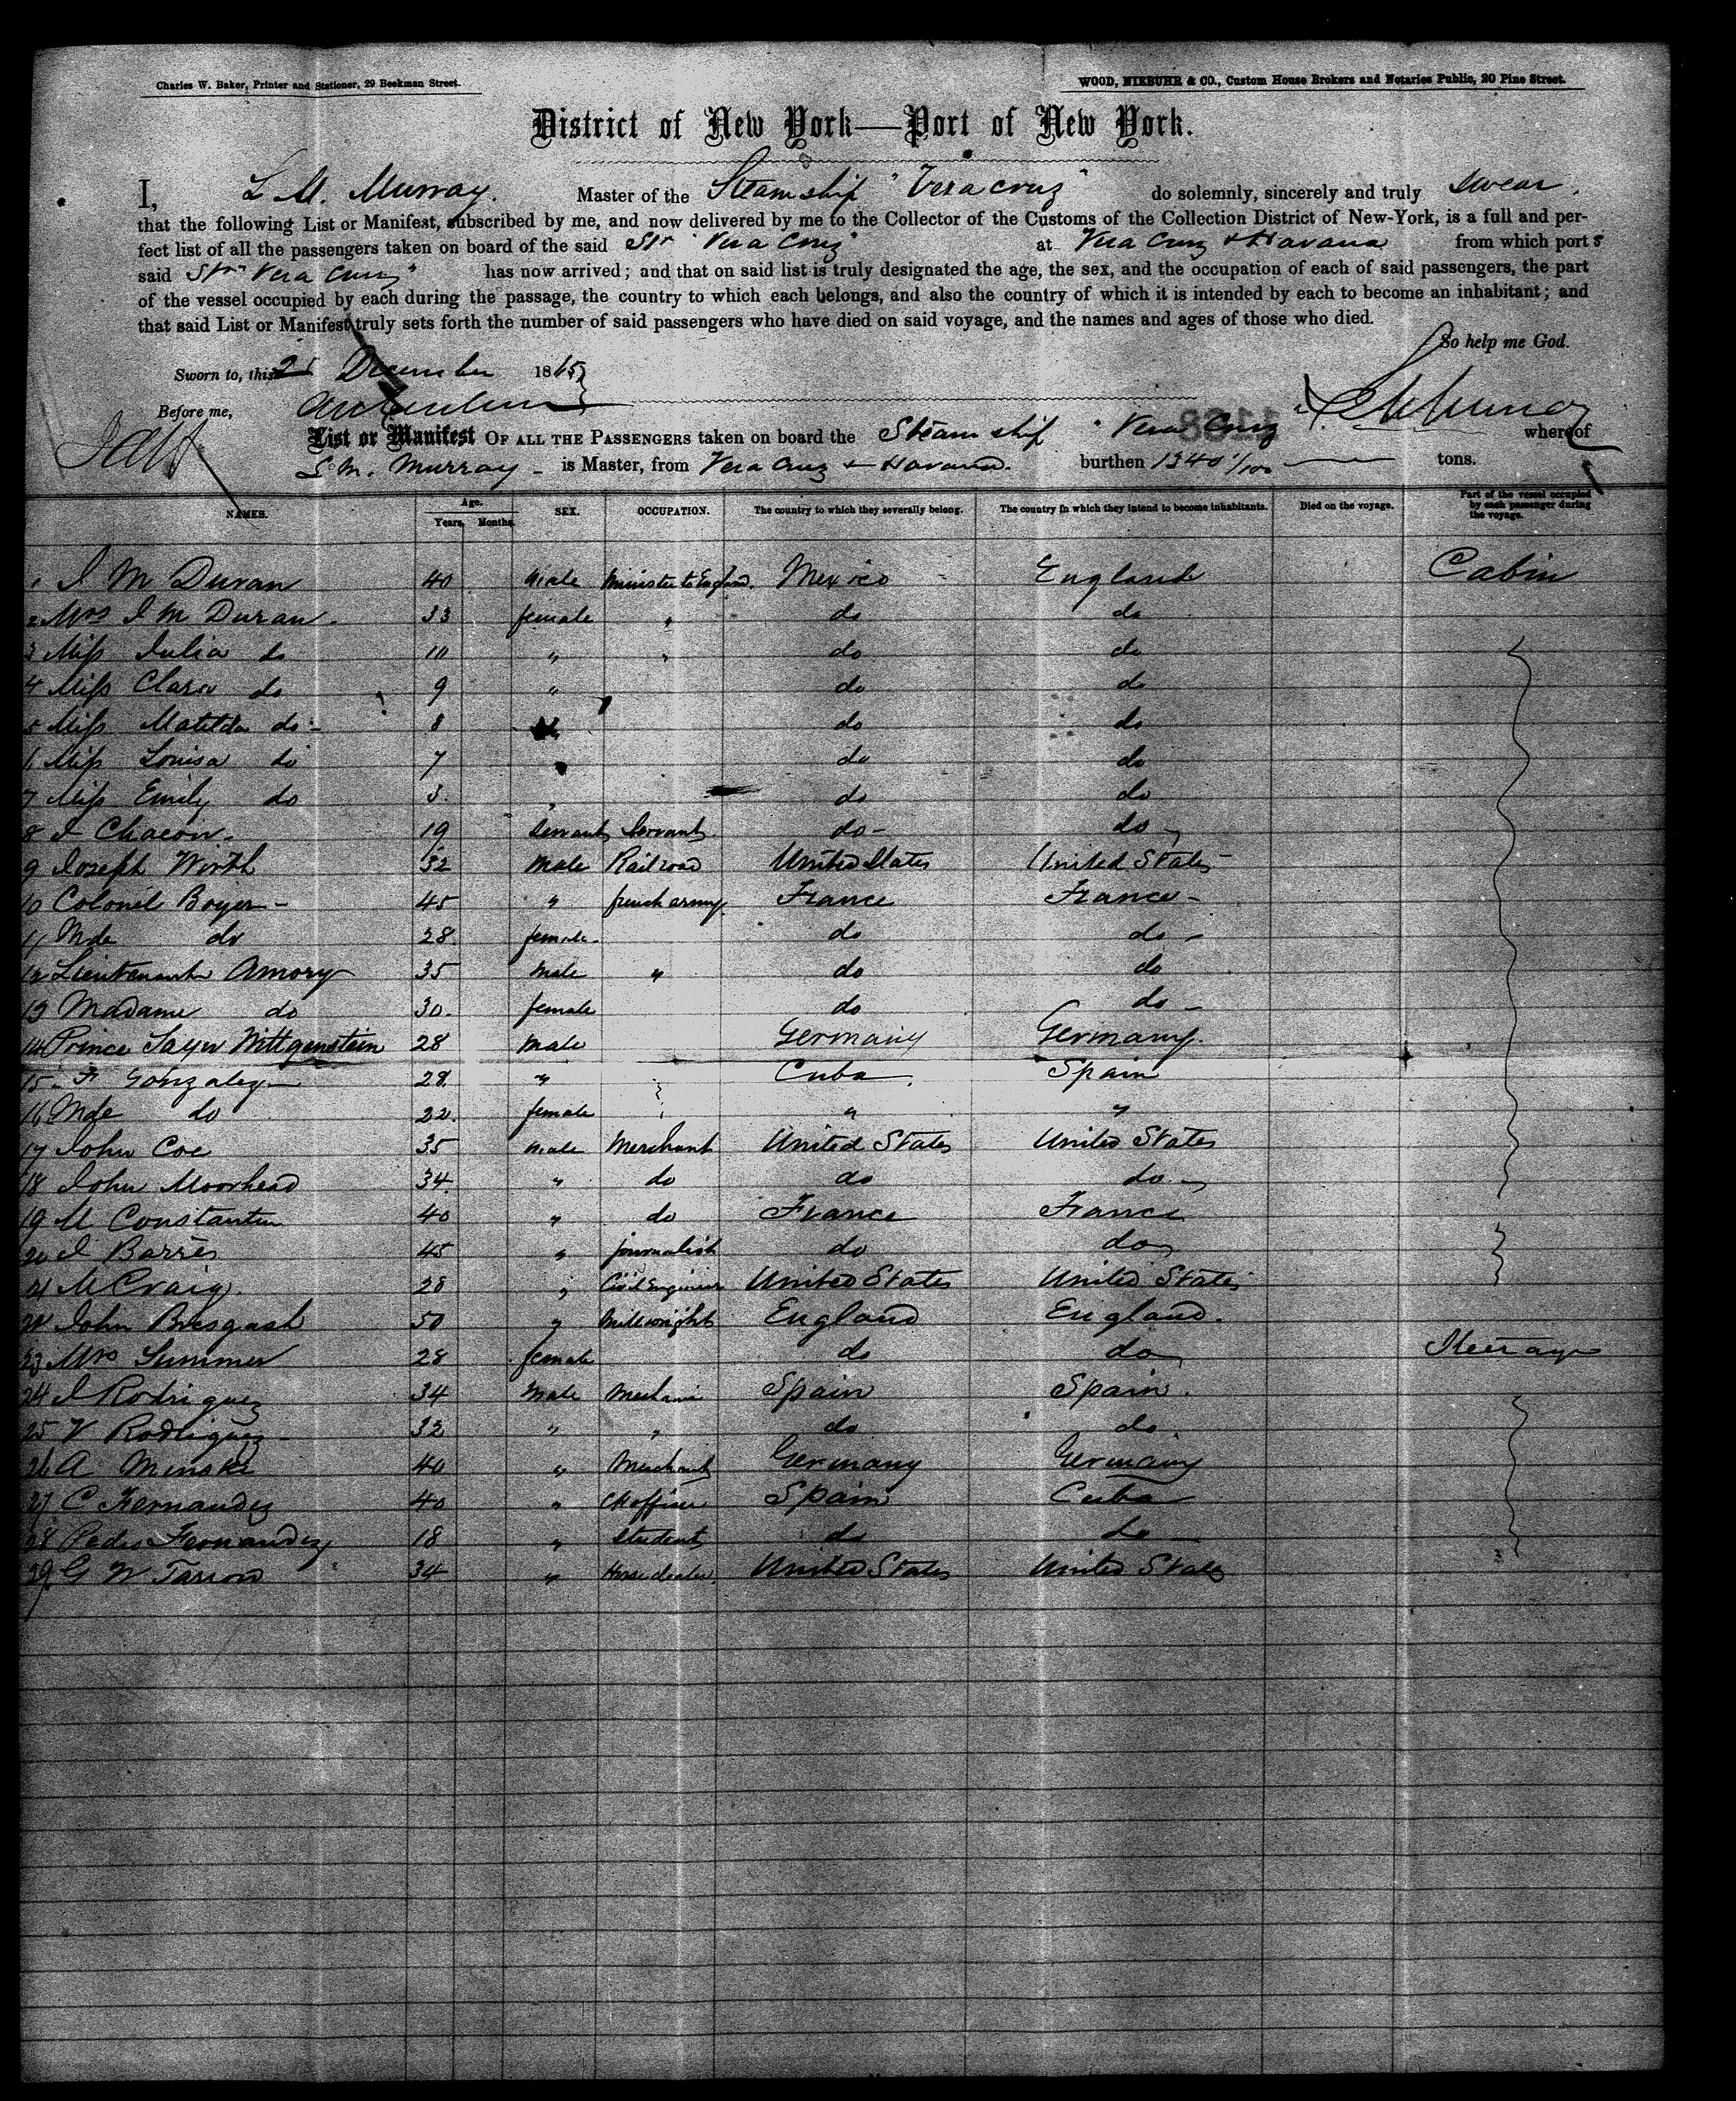 Charles W. Baker, Printer and Stationer, 29 Beekman Street.
WOOD, NIEBUHR & CO., Custom House Brokers and Notaries Public, 20 Pine Street.
District of New York—Port of New York.
I, L M. Murray. Master of the Steam ship "Vera cruz" do solemnly, sincerely and truly swear.
that the following List or Manifest, subscribed by me, and now delivered by me to the Collector of the Customs of the Collection District of New-York, is a full and per-
fect list of all the passengers taken on board of the said Str "Vera Cruz" at Vera Cruz & Havana from which ports
said Str "Vera Cruz" has now arrived; and that on said list is truly designated the age, the sex, and the occupation of each of said passengers, the part
of the vessel occupied by each during the passage, the country to which each belongs, and also the country of which it is intended by each to become an inhabitant; and
that said List or Manifest truly sets forth the number of said passengers who have died on said voyage, and the names and ages of those who died.
So help me God.
Sworn to, this December 1865
Before me,
List or Manifest OF ALL THE PASSENGERS taken on board the Steam ship "Vera Cruz whereof
L. M. Murray - is Master, from Vera Cruz & Havana. burthen 1340 1/100 tons.
NAMES. Age. Years. Months. SEX. OCCUPATION. The country to which they severally belong. The country in which they intend to become inhabitants. Died on the voyage. Part of the vessel occupied by each passenger during the voyage.
1 I M Duran 40 Male Minister to England. Mexico England Cabin
2 Mrs I M Duran. 33 female " do do
3 Miss Julia do 10 " " do do
4 Miss Clara do 9 " do do
5 Miss Matilda do 8 do do
6 Miss Louisa do 7 do do
7 Miss Emily do 3. " do do
8 I Chacon. 19 Servant Servant. do - do
9 Joseph Wirth 32 Male Railroad United States United States
10 Colonel Boyer - 45 " french army. France France -
11 Mde do 28. female. do do -
12 Lieutenant Amory 35 Male " do do
13 Madame do 30. female do do -
14 Prince Sayn Wittgenstein 28 Male Germany Germany.
15. F Gonzalez 28. " Cuba. Spain
16 Mde do 22. female " "
17 John Coe 35 Male Merchant United States United States
18 John Moorhead 34. " do do do
19 M Constantin 40 " do France France
20 I Barrès 45 " journalist do do
21 M Craig. 28 " Civil Engineer United States United States
22 John 50 " Millwright England England.
23 Mrs Summer 28 female do do Steerage
24 I Rodriguez 34 Male Mechanic Spain Spain.
25 V Rodriguez 32 " " do do.
26 A Minski 40 " Merchant Germany Germany
27 C Fernandez 40 " Spain Cuba
28 Pedro Fernandez 18 " Student do do
29. G W 34 " Horse dealer. United States United States